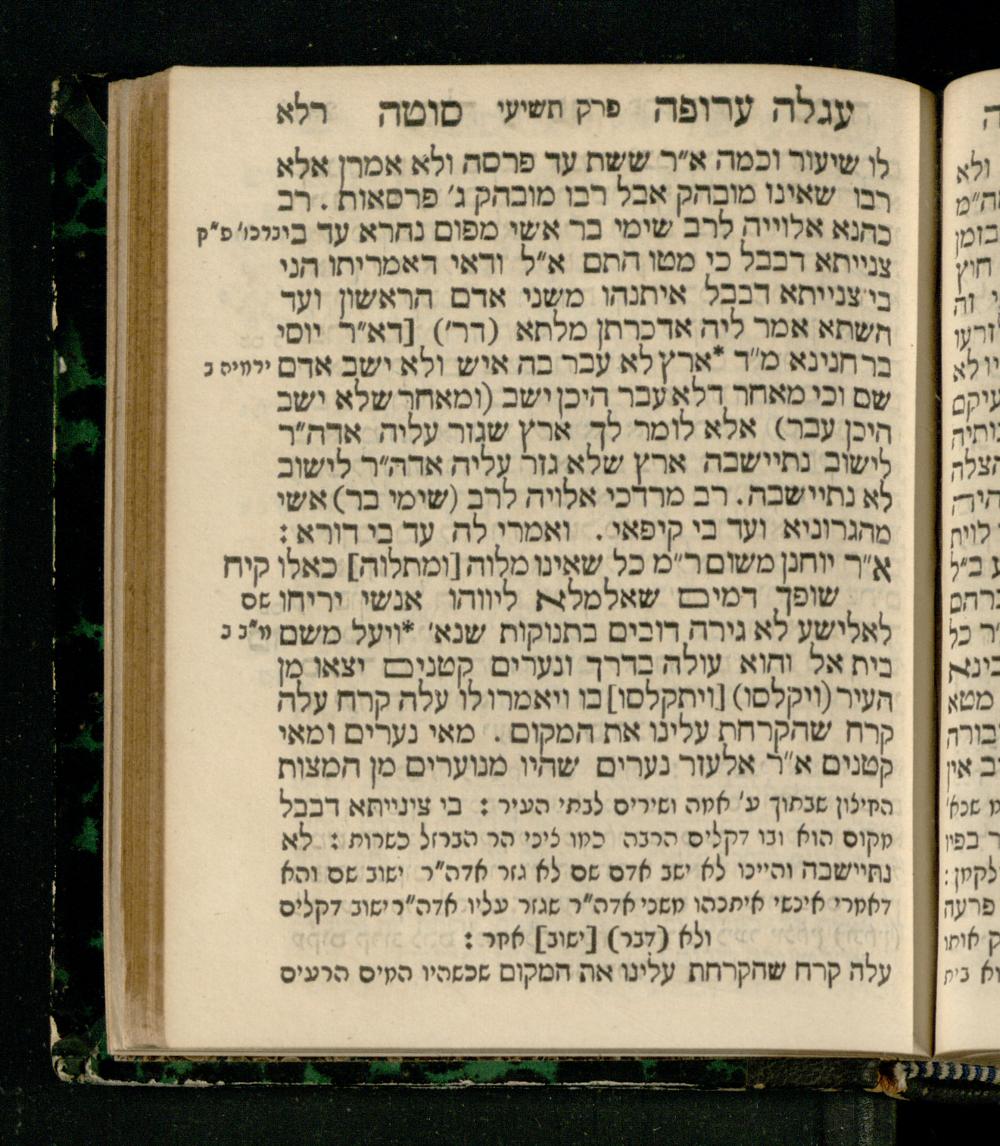 עגלה ערופה פרק תשיעי סוטה רלא
לו שיעור וכמה א״ר ששת עד פרסה ולא אמרן אלא
רבו שאינו מובהק אבל רבו מובהק ג׳ פרסאות . רב
כהנא אלוייה לרב שימי בר אשי מפום נהרא עד בי
צנייתא דבבל כי מטו התם א״ל ודאי דאמריתו הני
בי צנייתא דבבל איתנהו משני אדם הראשון ועד
השתא אמר ליה אדכרתן מלתא (דר׳) [דא״ר יוסי
ברחנינא מ״ד *ארץ לא עבר בה איש ולא ישב אדם ירמיה ב
שם וכי מאחר דלא עבר היכן ישב (ומאחר שלא ישב
היכן עבר) אלא לומר לך ארץ שגזר עליה אדה״ר
לישוב נתיישבה ארץ שלא גזר עליה אדה״ר לישוב
לא נתיישבה. רב מרדכי אלויה לרב (שימי בר) אשי
מהגרוניא ועד בי קיפאי. ואמרי לה עד בי דורא :
א״ר יוחנן משום ר״מ כל שאינו מלוה [ומתלוה] כאלו קיח
שופך דמים שאלמלא ליווהו אנשי יריחו שם
לאלישע לא גירה דובים בתנוקות שנא׳ *ויעל משם מ״ב ב
בית אל והוא עולה בדרך ונערים קטנים יצאו מן
העיר (ויקלסו) [ויתקלסו] בו ויאמרו לו עלה קרח עלה
קרח שהקרחת עלינו את המקום . מאי נערים ומאי
קטנים א״ר אלעזר נערים שהיו מנוערים מן המצות
החילון שבתוך ע׳ אמה ושירים לבתי העיר : בי ציניייתא דבבל
מקום הוא ובו דקלים הרבה כמו ציני הר הברזל כשרות : לא
נתיישבה והיינו לא ישב אדם שם לא גזר אדה״ר ישוב שם והא
דאמרי אינשי איתנהו משני אדה״ר שגזר עליו אדה״ר ישוב דקלים
ולא (דבר) [ישוב] אחר :
עלה קרח שהקרחת עלינו את המקום שכשהיו המים הרעים